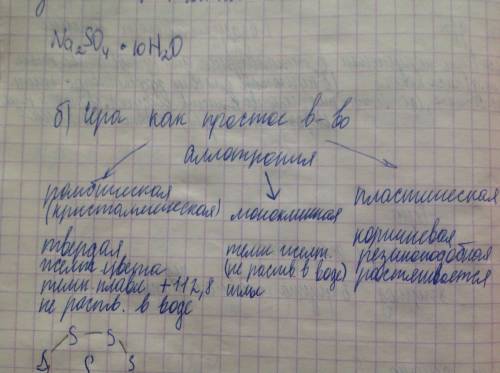 Na₂SO₄ · 10H₂O
б) Сера как простое в-во
аллотропия
ромбическая
(кристаллическая)
твердая
желт. цвета
темп. плавл. +112,8
не раств. в воде
моноклинная
темн. желт.
(не раств. в воде)
иглы
пластическая
коричневая
резиноподобная
растягивается
S S
S S